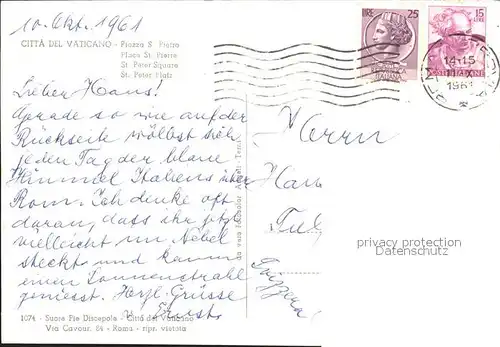 10. Okt. 1961
CITTÀ DEL VATICANO - Piazza S. Pietro
Place St. Pierre
St. Peter Square
St. Peter Platz
LIRE 25
ITALIANA
15
14-15
11 X
1961
Lieber Hans!
Gerade so wie auf der
Rückseite wölbt sich
jeden Tag der blaue
Himmel Italiens über
Rom. Ich denke oft
daran, dass ihr jetzt
vielleicht im Nebel
steckt und kaum
einen Sonnenstrahl
geniesst. Herzl. Grüsse
v. Ernst
da vera fotocolor
Herrn
Svizzera
privacy protection
Datenschutz
1074 - Suore Pie Discepole - Città del Vaticano
Via Cavour, 84 - Roma - ripr. vietata